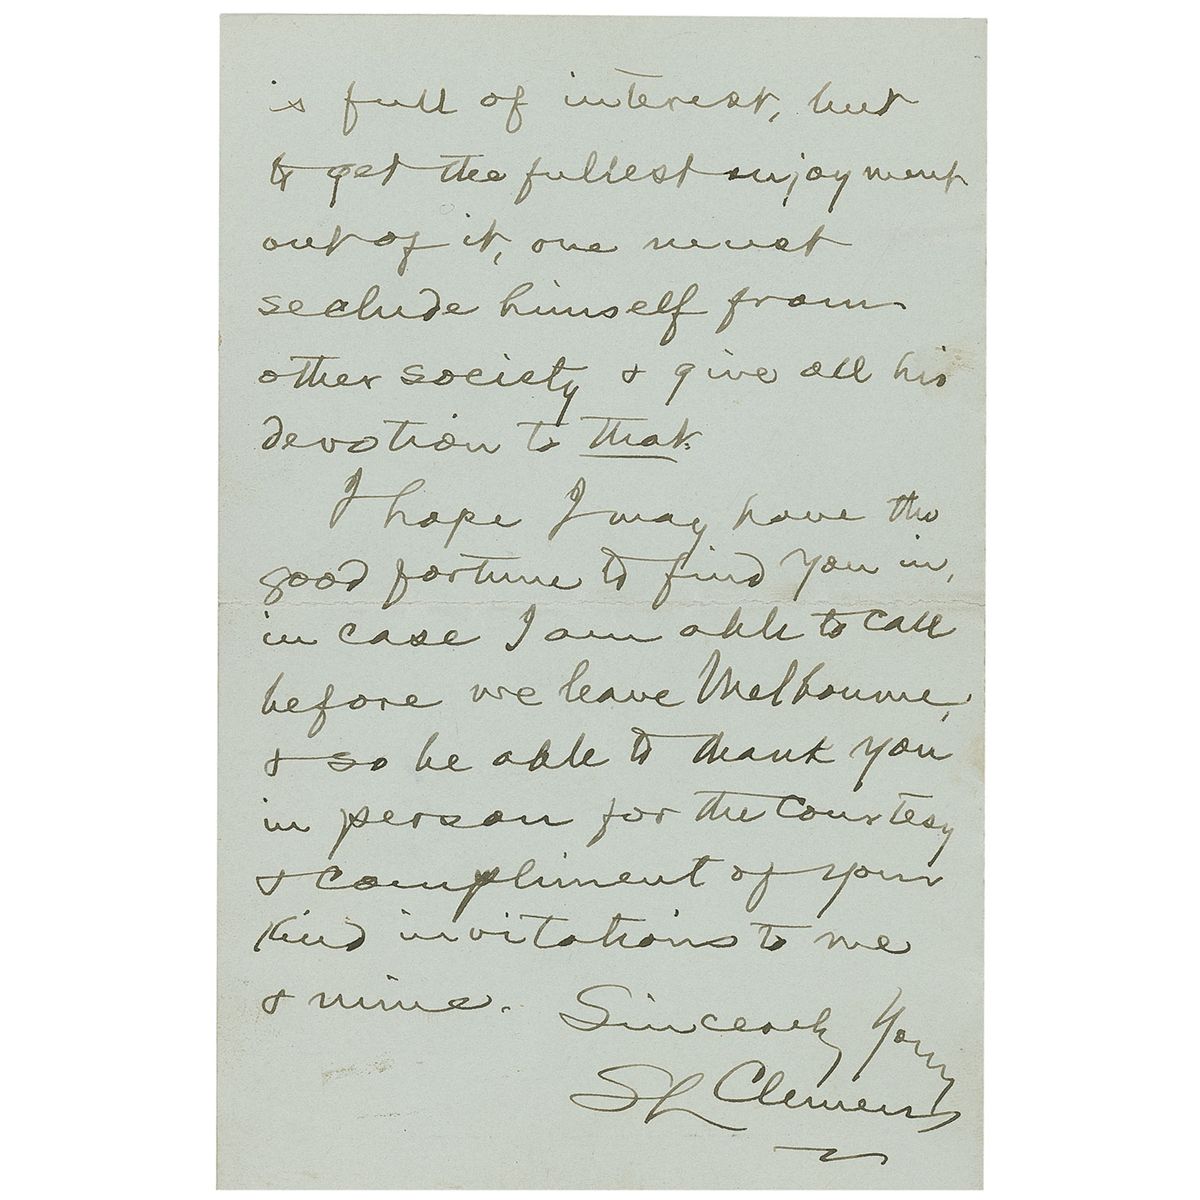 is full of interest, but
to get the fullest enjoyment
out of it, one must
seclude himself from
other society & give all his
devotion to that.
I hope I may have the
good fortune to find you in,
in case I am able to call
before we leave Melbourne,
& so be able to thank you
in person for the courtesy
& compliment of your
kind invitations to me
& mine.
Sincerely Yours
SL Clemens